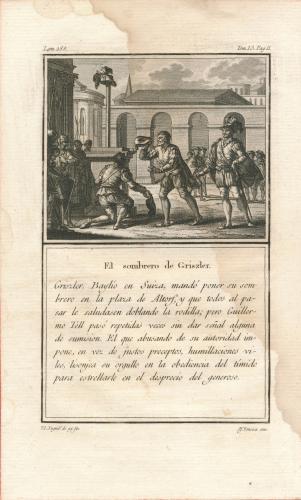 Lam. 288.
Tom. 13. Pag. 11.
El sombrero de Griszler.
Griszler, Baylio en Suiza, mandó poner su som-
brero en la plaza de Altorf, y que todos al pa-
sar le saludasen doblando la rodilla; pero Guiller-
mo Tell pasó repetidas veces sin dar señal alguna
de sumision. El que abusando de su autoridad im-
pone, en vez de justos preceptos, humillaciones vi-
les, lisonjea su orgullo en la obediencia del timido
para estrellarte en el desprecio del generoso.